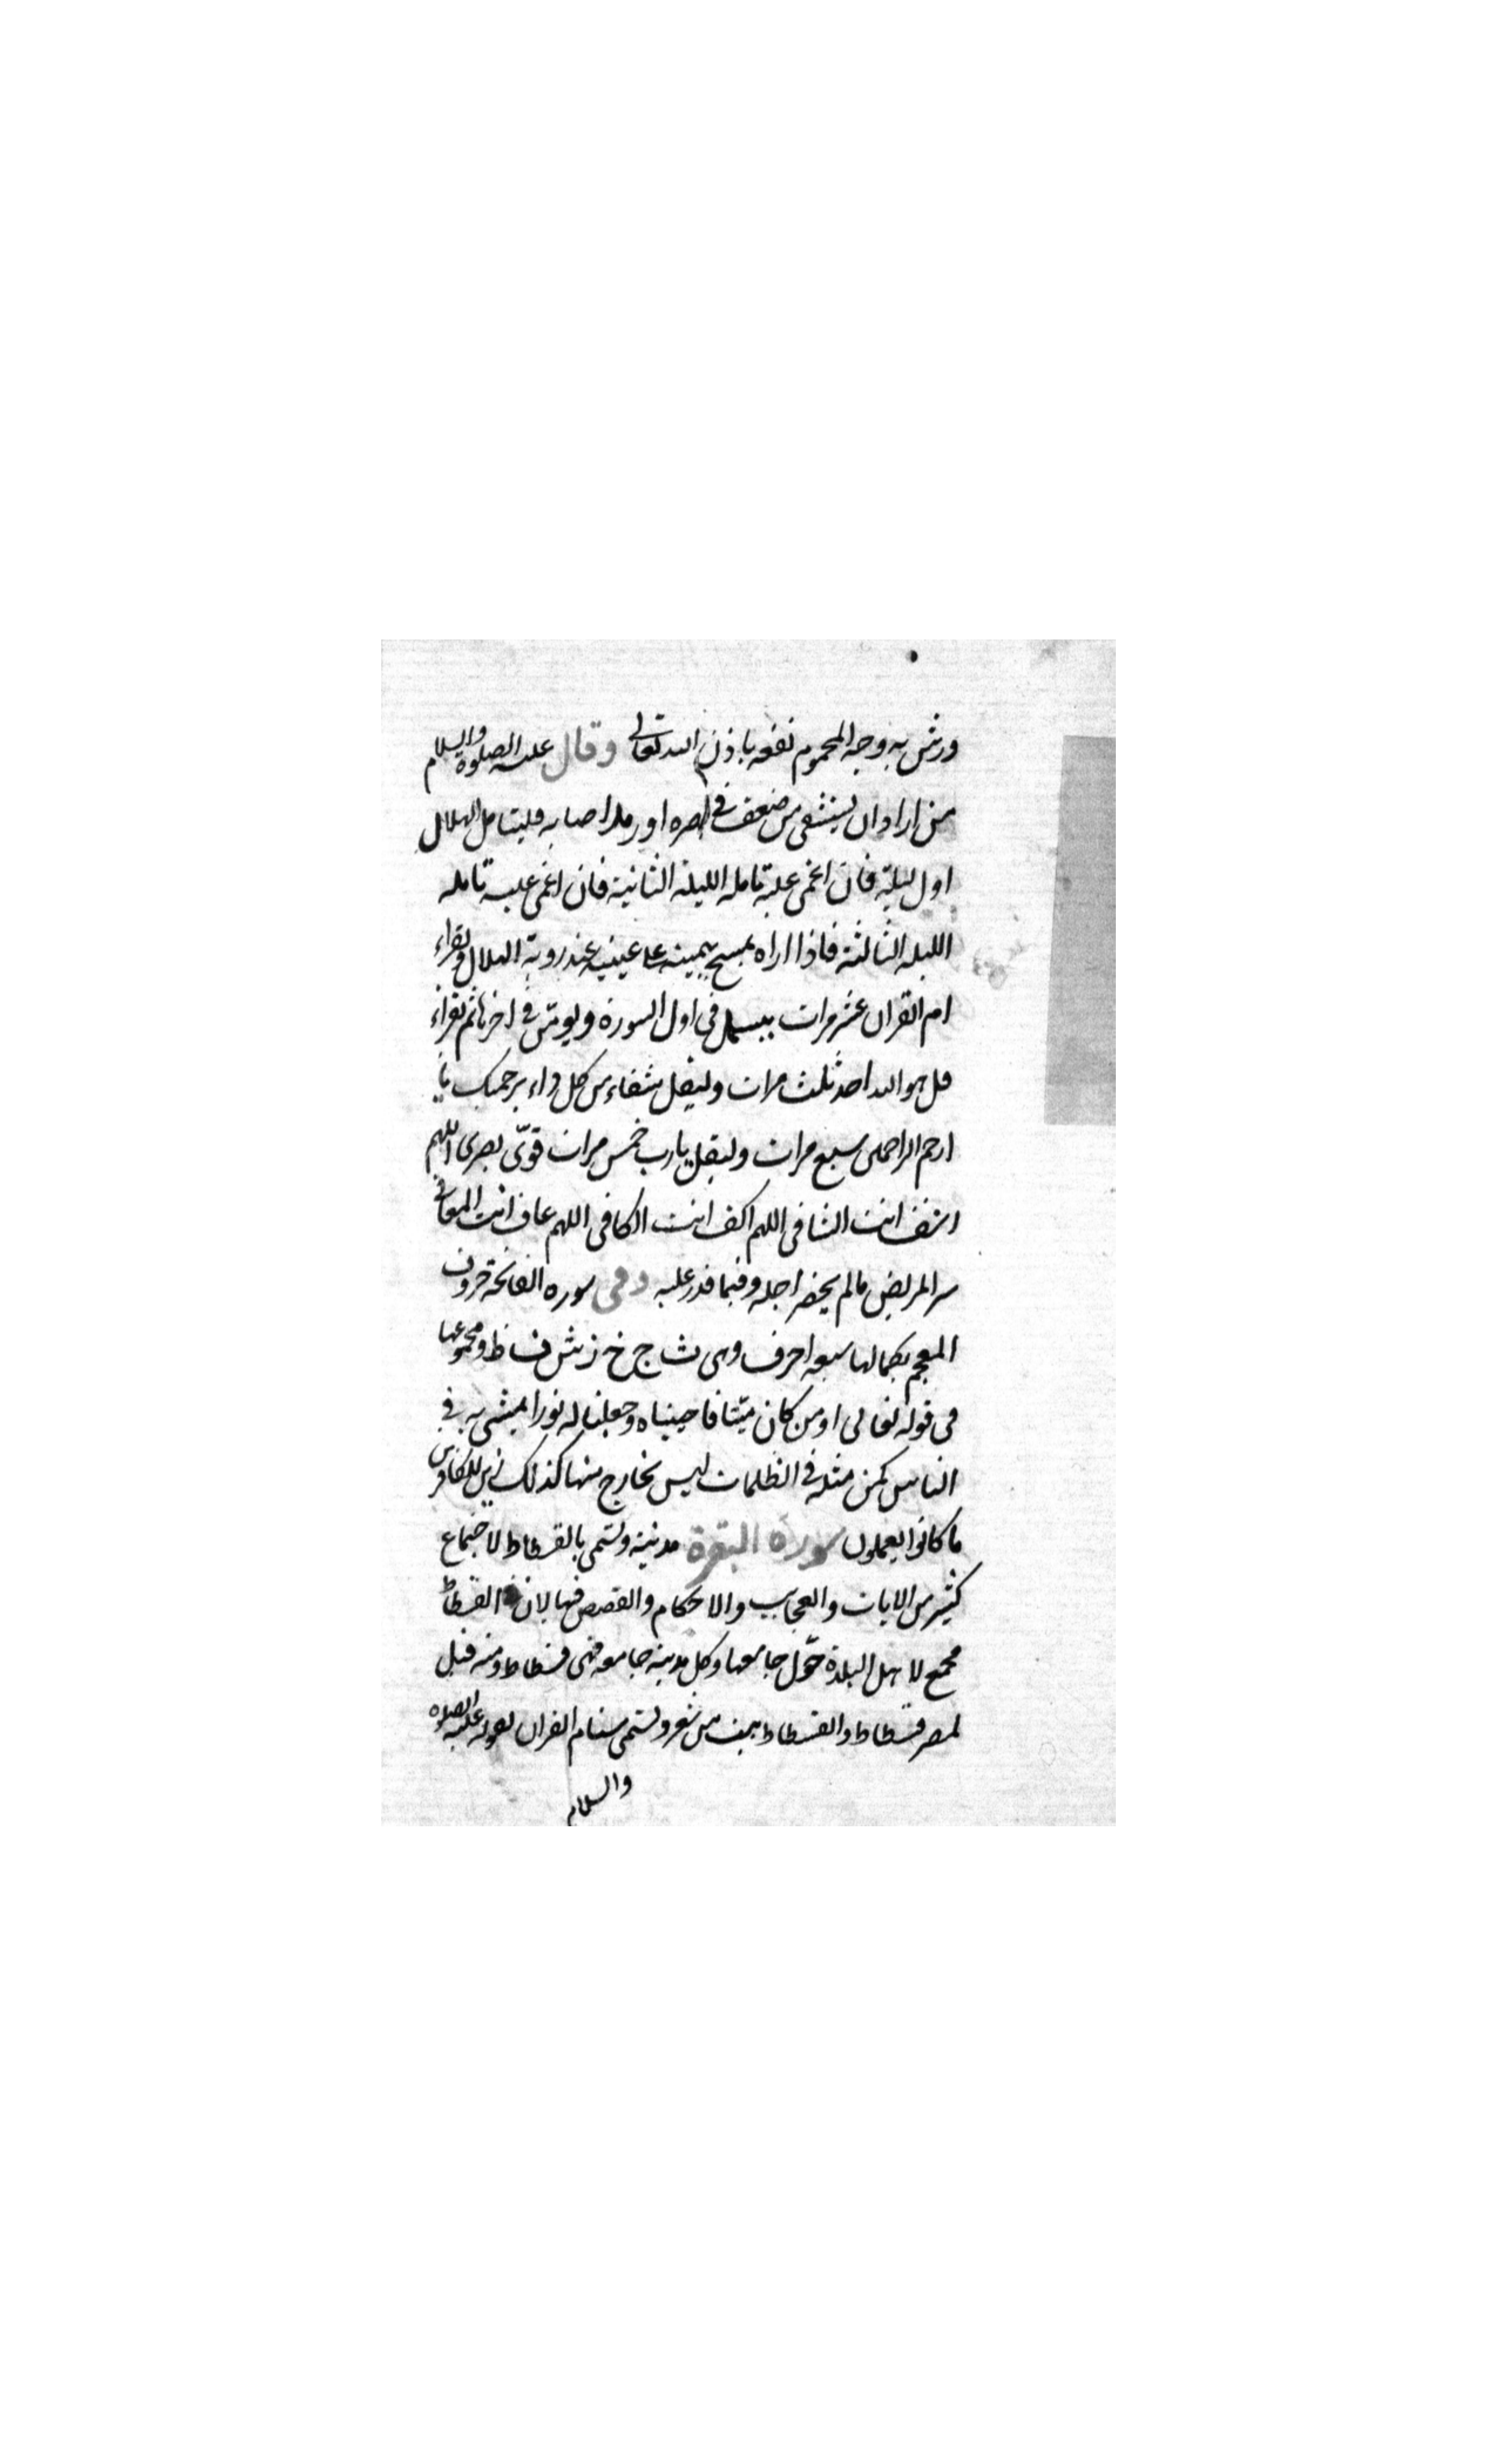 ورش به وجه المحموم نفعه باذن الله تعالى وقال عليه الصلوة والسلام
من اراد ان يستشفى من ضعف فى بصره او رمد اصابه فليتامل الهلال
اول ليلة فان اغمى عليه تامله الليلة الثانية فان اغمى عليه تامله
الليلة الثالثة فاذا اراه يمسح بيمينه على عينيه عند روية الهلال ويقراء
ام القران عشر مرات يبسمل فى اول السورة ويومن فى اخرها ثم يقراء
قل هو الله احد ثلث مرات وليقل شفاء من كل داء برحمتك يا
ارحم الراحمين سبع مرات وليقل يا رب خمس مرات قوّى بصرى اللهم
اشف انت الشافى اللهم اكف انت الكافى اللهم عاف انت المعافى
المريض مالم يحضر اجله وفيما قدر عليه وفى سوره الفاتحة حروف
المعجم بكمالها سبعه احرف وهى ث ج خ ز ش ف ظ ومجموعها
فى قوله تعالى اومن كان ميتا فاحييناه وجعلنا له نورا يمشى به فى
الناس كمن مثله فى الظلمات ليس بخارج منها كذلك زين للكافرين
ما كانوا يعملون سورة البقرة مدنية وتسمى بالفسطاط لاجتماع
كثير من الايات والعجايب والاحكام والقصص فيها لان الفسطاط
مجمع لاهل البلدة حول جامعها وكل مدينه جامعه فهى فسطاط ومنه قيل
لمصر فسطاط والفسطاط بيت من شعر وتسمى سنام القران لقوله عليه الصلوه
والسلام